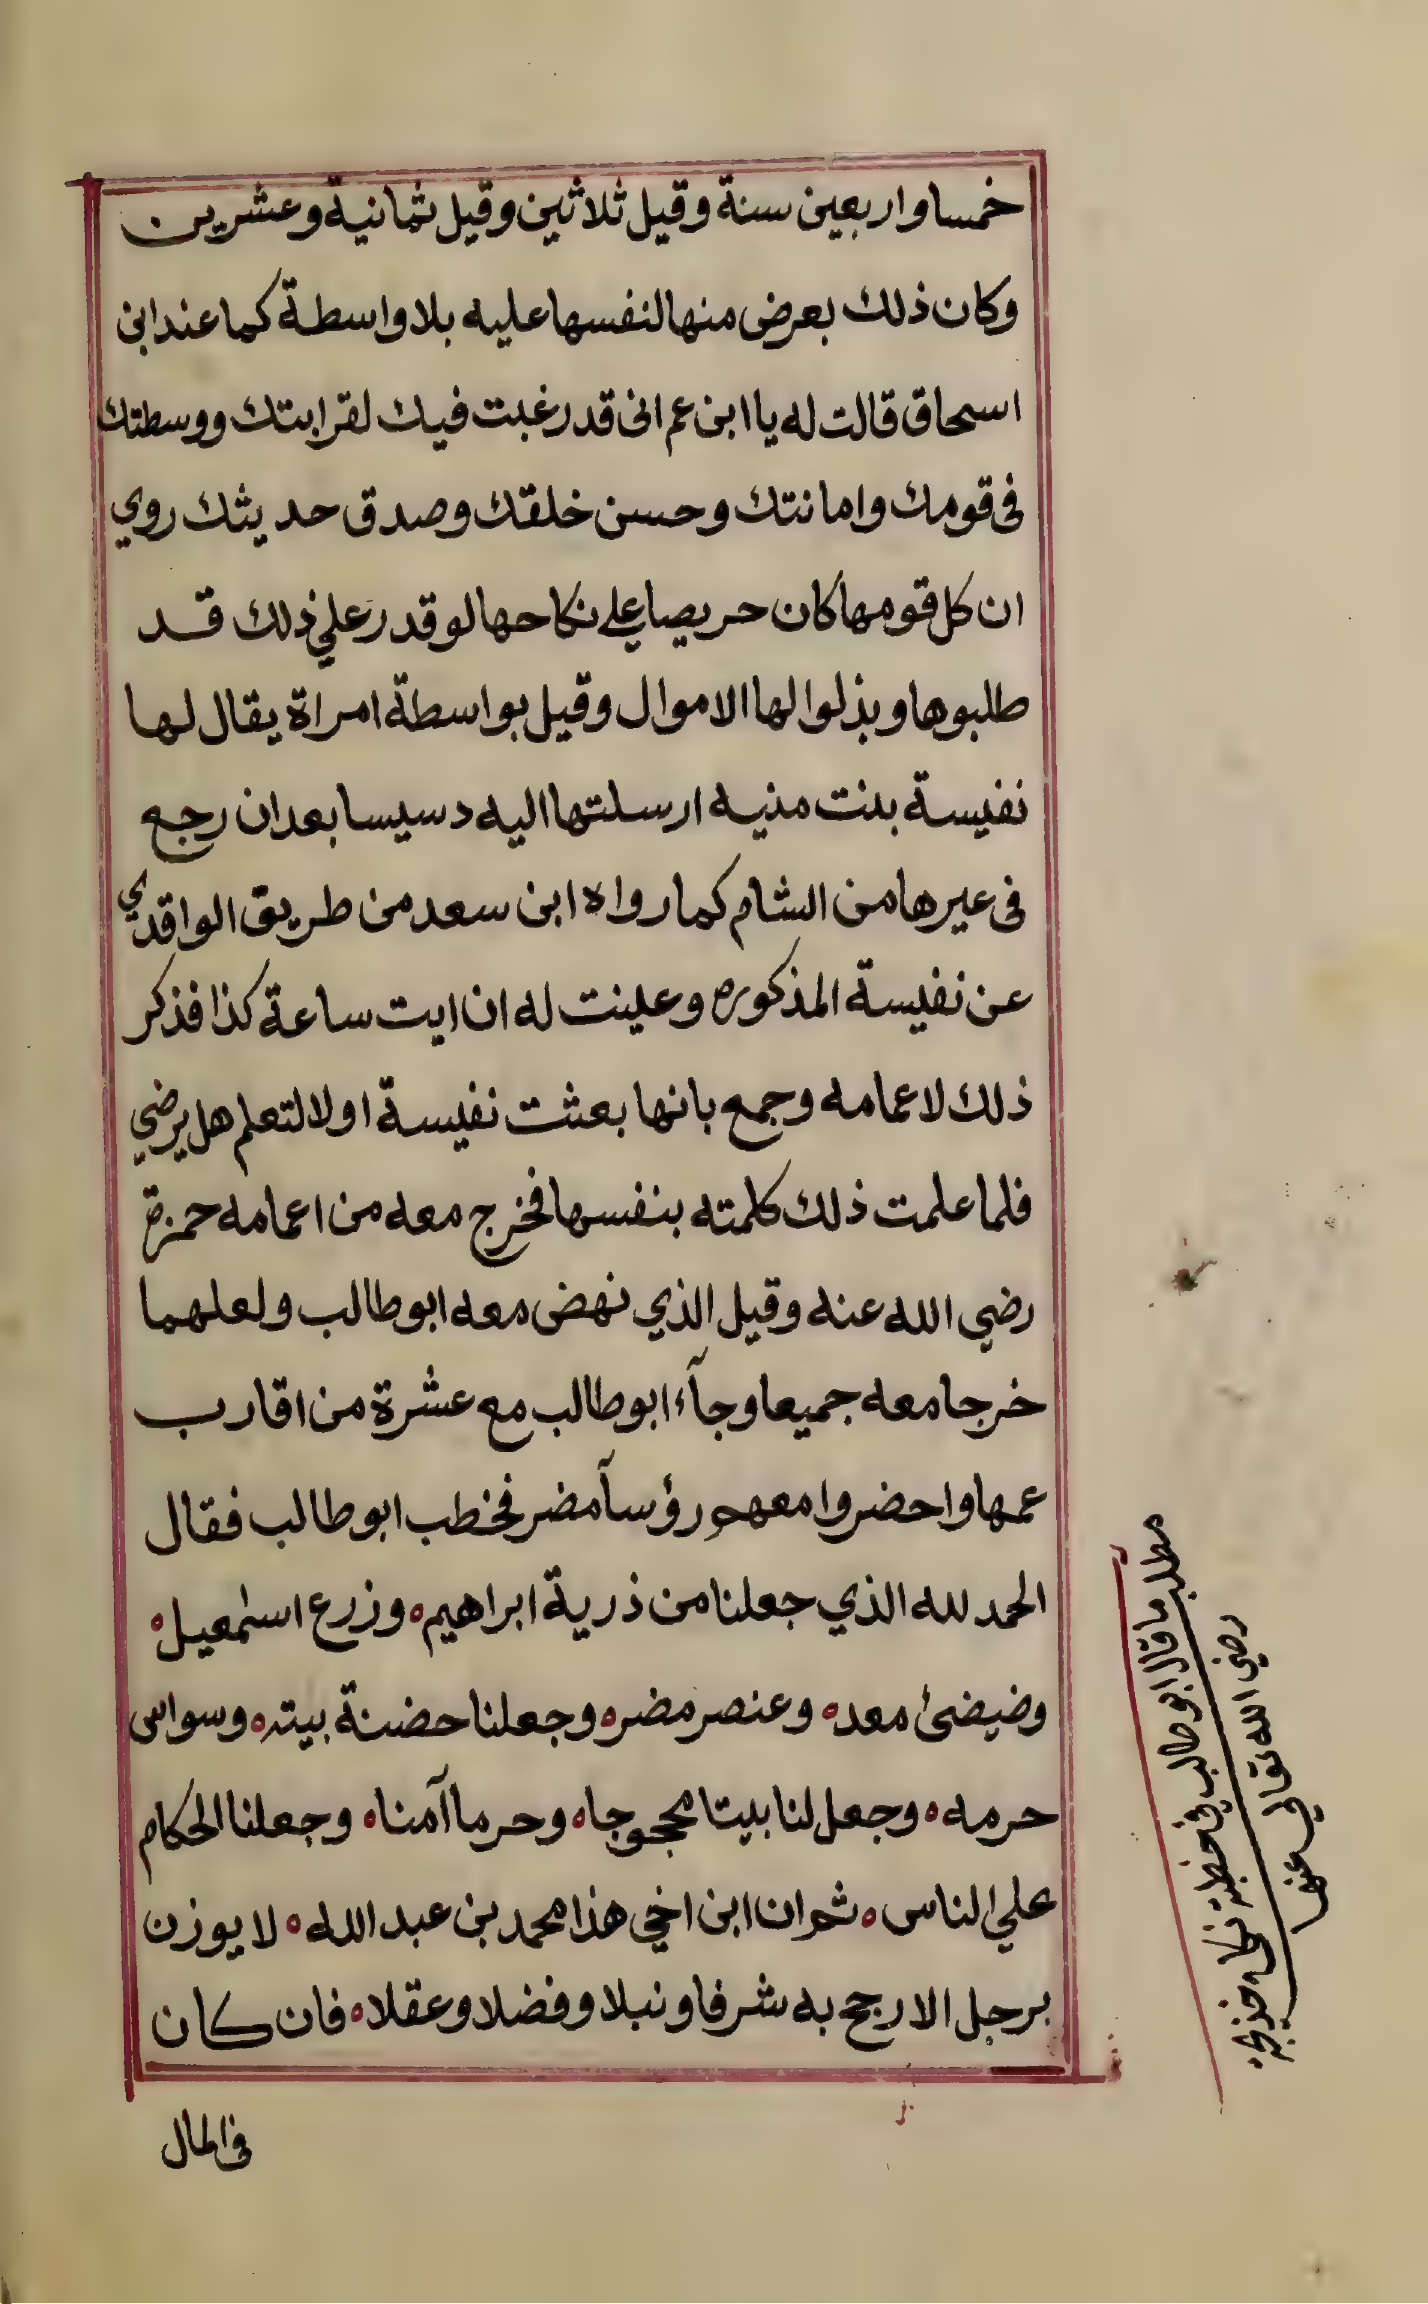 خمسا واربعين سنة وقيل ثلاثين وقيل ثمانية وعشرين
وكان ذلك بعرض منها لنفسها عليه بلا واسطة كما عند ابن
اسحاق قالت له يا ابن عم اني قد رغبت فيك لقرابتك ووسطتك
في قومك وامانتك وحسن خلقك وصدق حديثك روي
ان كل قومها كان حريصا علي نكاحها لو قدر علي ذلك قد
طلبوها وبذلوا لها الاموال وقيل بواسطة امراة يقال لها
نفيسة بنت منيه ارسلتها اليه دسيسا بعد ان رجع
في عيرها من الشام كما رواه ابن سعد من طريق الواقدي
عن نفيسة المذكورة وعينت له ان ايت ساعة كذا فذكر
ذلك لاعمامه وجمع بانها بعثت نفيسة اولا لتعلم هل يرضي
فلما علمت ذلك كلمته بنفسها فخرج معه من اعمامه حمزة
رضي الله عنه وقيل الذي نهض معه ابو طالب ولعلهما
خرجا معه جميعا وجآء ابو طالب مع عشرة من اقارب
عمها واحضروا معهم رؤسآ مضر فخطب ابو طالب فقال
الحمد لله الذي جعلنا من ذرية ابراهيم ه وزرع اسمعيل ه
وضيضئ معد ه وعنصر مضر ه وجعلنا حضنة بيته ه وسواس
حرمه ه وجعل لنا بيتا محجوجا ه وحرما آمنا ه وجعلنا الحكام
علي الناس ه ثم ان ابن اخي هذا محمد بن عبد الله ه لا يوزن
برجل الا رجح به شرفا ونبلا وفضلا وعقلا ه فان كان
في المال
مطلب ما قال ابو طالب في خطبة نكاح خديجة
رضي الله تعالي عنها